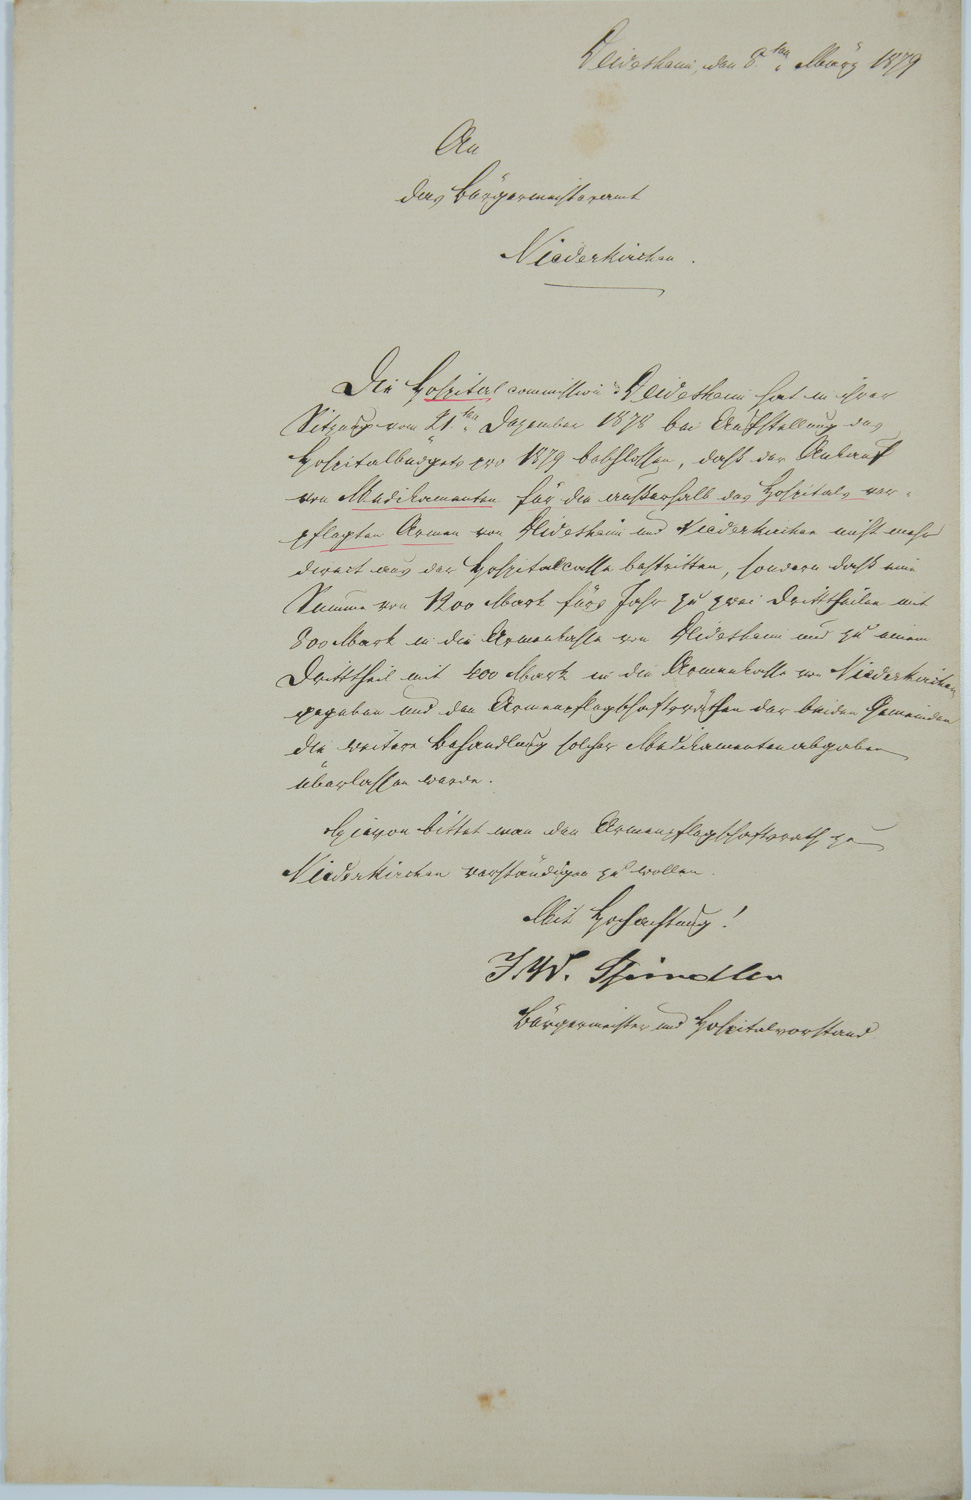 Deidesheim, den 8ten März 1879
An
das Bürgermeisteramt
Niederkirchen.
Die Hospitalcommission Deidesheim hat in ihrer
Sitzung vom 21ten Dezember 1878 bei Aufstellung des
Hospitalbudgets pro 1879 beschlossen, daß der Ankauf
von Medikamenten für die außerhalb des Hospitals ver-
pflegten Armen von Deidesheim und Niederkirchen nicht mehr
direct aus der Hospitalcasse bestritten, sondern daß eine
Summe von 1200 Mark fürs Jahr zu zwei Drittheilen mit
800 Mark in die Armenkasse von Deidesheim und zu einem
Drittheil mit 400 Mark in die Armenkasse von Niederkirchen
gegeben und den Armenpflegschaftsräthen der beiden Gemeinden
die weitere Behandlung solcher Medikamentenabgaben
überlassen werde.
Hievon bittet man den Armenpflegschaftsrath zu
Niederkirchen verständigen zu wollen.
Mit Hochachtung!
J. W. Spindler
Bürgermeister und Hospitalvorstand